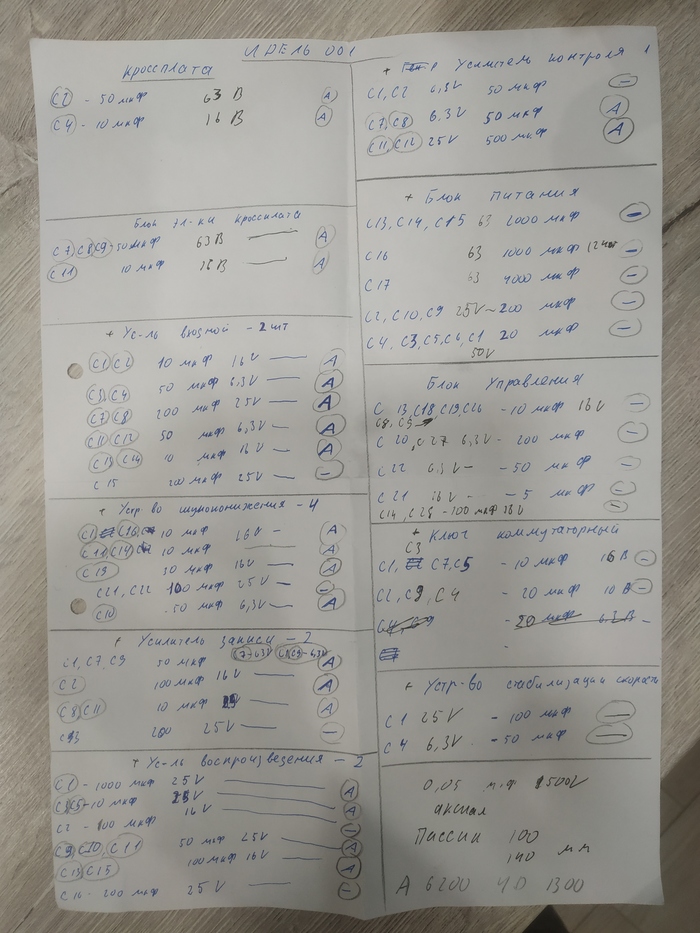 ИДЕЛЬ 001
Кроссплата
C2 - 50 мкф 63 В А
C4 - 10 мкф 16 В А
Блок Эл-ки кроссплата
C7, C8 C9 - 50 мкф 63 В А
C11 10 мкф 16 В А
+ Ус-ль входной - 2 шт
C1 C2 10 мкф 16 V А
C3, C4 50 мкф 6,3 V А
C7 C8 200 мкф 25 V А
C11 C12 50 мкф 6,3 V А
C13 C14 10 мкф 16 V А
C 15 200 мкф 25 V -
+ Устр во шумопонижения - 4
C1 C16 10 мкф 16 V А
C11, C14 10 мкф А
C19 30 мкф 16 V А
C21, C22 100 мкф 25 V -
C10 50 мкф 6,3 V А
+ Усилитель записи - 2
C1, C7, C9 50 мкф C7-63V C1,C9-6,3V А
C2 100 мкф 16 V А
C8, C11 10 мкф А
200 25 V -
+ Ус-ль воспроизведения - 2
C1 - 1000 мкф 25 V А
C3, C5 - 10 мкф 25 V А
C2 - 100 мкф 16 V
C9, C10, C11 50 мкф 25 V А
C13 C15 100 мкф 16 V А
C16 - 200 мкф 25 V -
+ Усилитель контроля 1
C1, C2 6,3 V 50 мкф -
C7, C8 6,3 V 50 мкф А
C11, C12 25 V 500 мкф А
+ Блок питания
C13, C14, C15 63 2000 мкф -
C16 63 1000 мкф 12 шт -
C17 63 4000 мкф -
C2, C10, C9 25 V - 200 мкф -
C4, C3, C5, C6, C1 20 мкф -
50 V
Блок Управления
C 13, C18, C19, C26 - 10 мкф 16 V -
C8, C5
C 20, C 27 6,3 V - 200 мкф -
C 22 6,3 V - - 50 мкф -
C 21 16 V - - 5 мкф -
C14, C28 - 100 мкф 16 V -
+ Ключ коммутаторный
C3
C1, C7, C5 - 10 мкф 16 В -
C2, C9, C4 - 20 мкф 10 В -
- 20 мкф 6,3 В -
+ Устр-во стабилизации скорость
C1 25 V - 100 мкф -
C4 6,3 V - 50 мкф -
0,05 мкф 1500 V
аксиал
Пассик 100
140 мм
А 6200 ЧД 1300